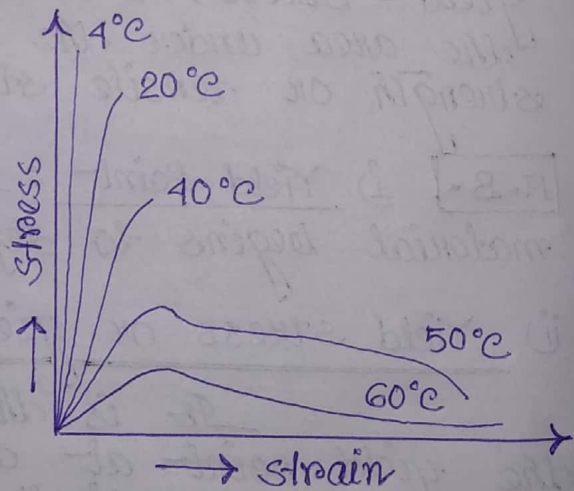 4°C
20°C
40°C
50°C
60°C
stress
strain